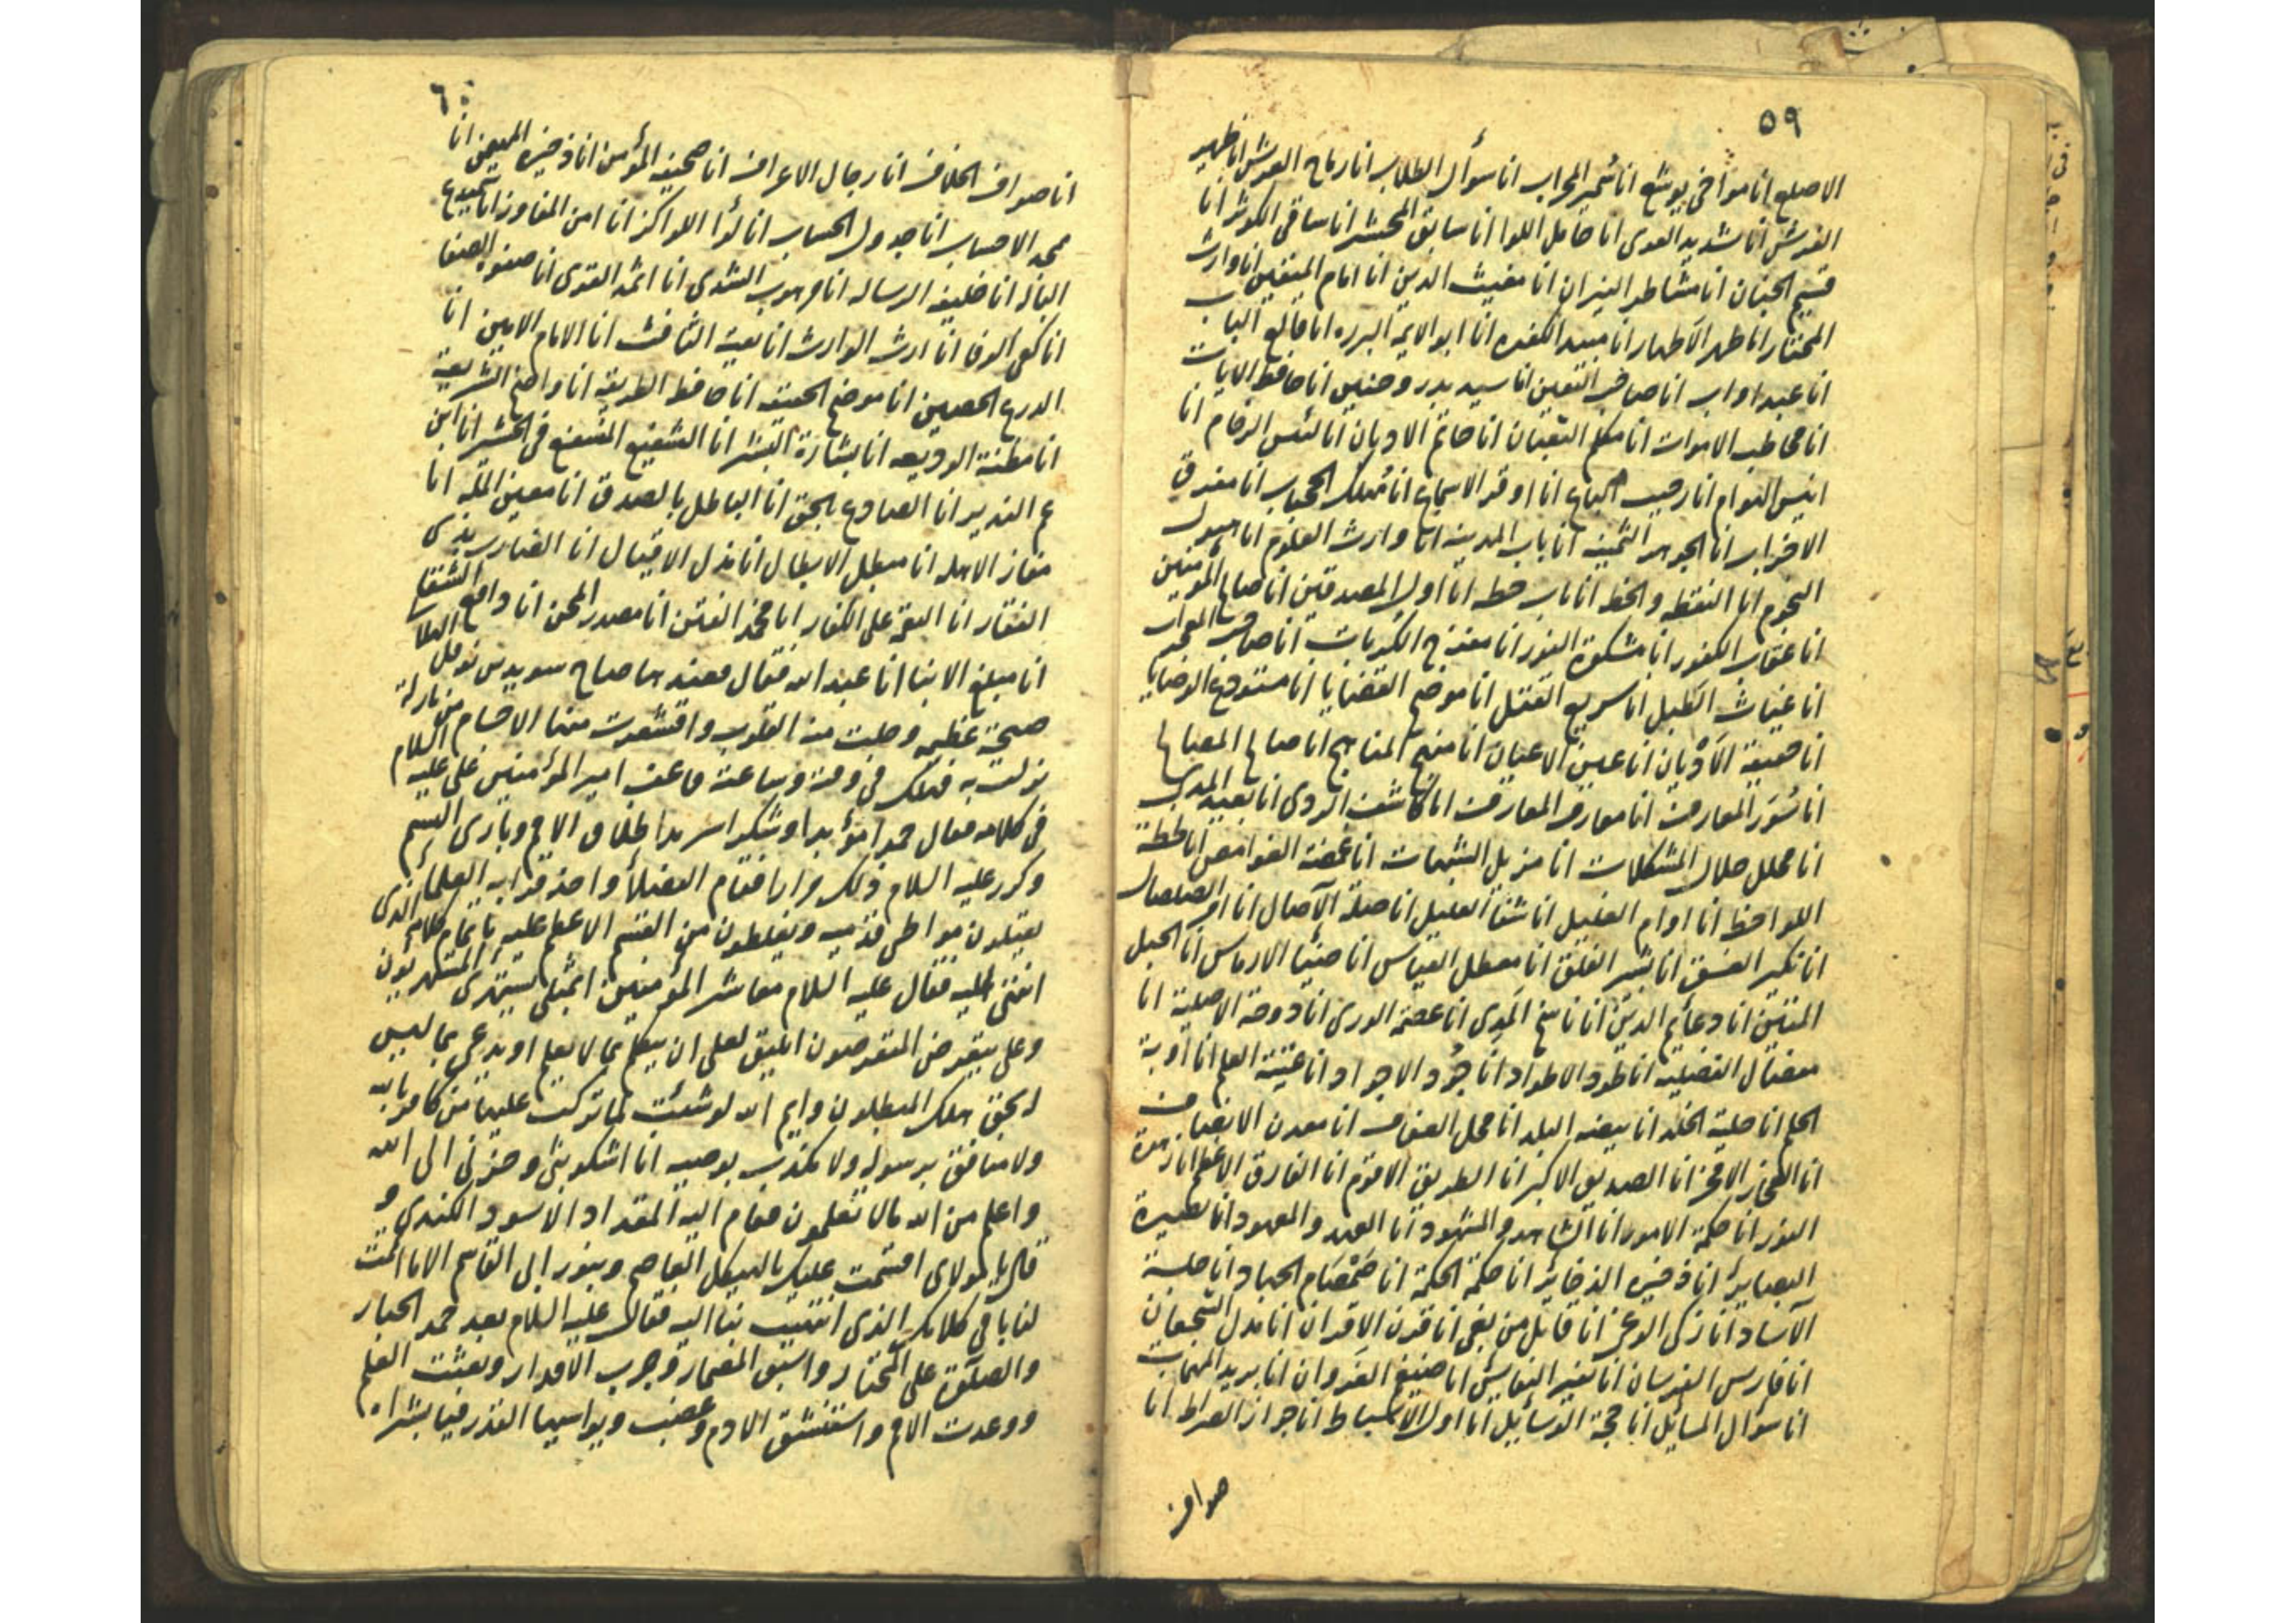 ٥٩
الاصلع انا مؤاخى يوشع انا سُمير المحراب انا سوأل الطلاب انا رماح العرش انا ظهير
الفرش انا شديد القوى انا حامل اللوا انا سابق المحشر انا ساقى الكوثر انا
قسيم الجنان انا مشاطر النيران انا مغيث الدين انا امام المتقين انا وارث
المختار انا طهر الاطهار انا مبيد الكفره انا ابو الايمه البرره انا قالع الباب
انا عبد اواب انا صاحب انا سيد بدر وحنين انا حافظ الايات
انا مخاطب الاموات انا مكلم الثعبان انا حاتم الاديان انا ليس الزحام انا
انيس الهوام انا رحيب الباع انا اوقر الاسماع انا مُهلك الحجاب انا مفرق
الاحزاب انا الجوهر الثمينه انا باب المدينه انا وارث العلوم انا هيول
النجوم انا النقطه والخطه انا باب حطه انا اول المصدقين انا صالح المؤمنين
انا عقاب الكفور انا مشكوة النور انا مفرج الكربات انا صاحب المعجزات
انا غياث انا سريع الفتك انا موضح القضايا انا مستودع الوصايا
انا حقيقة الاديان انا عين الاعيان انا منهج المناهج انا صالح المصالح
انا سُوَر المعارف انا معارف المعارف انا كاشف الردى انا بعيد المدى
انا محلل المشكلات انا مزيل الشبهات انا الغوامض انا لحظة
اللواحظ انا اوام الغليل انا شفا العليل انا صلة الآصال انا
انا تكبير الغسق انا بشير الفلق انا معطل القياس انا الارماس انا الحبل
المتين انا دعايم الدين انا ناسخ المَرى انا عصمه الورى انا دوحه الاصليه انا
مفضال الفضليه انا طود الاطواد انا جُود الاجواد انا عيبة العلم انا اوبة
الحلم انا حلية الخلد انا بيضه البلد انا محل العفاف انا معدن الانصاف
انا الفخار الافخر انا الصديق الاكبر انا الطريق الاقوم انا الفارق الاعظم انا زهرة
النور انا حكمة الامور انا الشاهد والمشهود انا العهد والمعهود انا بصيرة
البصاير انا ذخيره الذخاير انا حكمة الحكمة انا صَمْصَام الجهاد انا حلبة
الآساد انا زكى الوغى انا قاتل من بغى انا قرن الاقران انا مذل الشجعان
انا فارس الفرسان انا نفيس النفايس انا ضيغم الغزوان انا بريد المهمات
انا سوأل المسايل انا حجة الوسايل انا اول الاسباط انا جواز الصراط انا
صواف
٦٠
انا صواف الخلاف انا رجال الاعراف انا صحيفه المؤمن انا ذخيره المهيمن انا
محمد الاحساب انا جدول الحساب انا لوا اللواكز انا امن المفاوز انا سميدع
انا خليفه الرساله انا مرهوب الشذى انا اثمد القذى انا صفوه الصفا
انا كفى الوفا انا ارث الوارث انا نفث النافث انا الامام الامين انا
الدرع الحصين انا موضح الحقيقه انا حافظ الطريقه انا واضح الشريعة
انا مظنة الوديعه انا بشارة البشر انا الشفيع المشفع فى المحشر انا ابن
عم النذير انا الصادع بالحق انا الباطل بالصدق انا معين المله انا
مفاز الاهله انا مبطل الابطال انا مذل الاقيال انا الضارب بذى
الفقار انا النقمه على الكفار انا مخمد الفتن انا مصدر المحن انا دافع الشقا
انا مبلغ الابنا انا عبد الله فقال فعندها صاح سويد بن نوفل الهلالى
صيحة عظيمه وجلت منه القلوب واقشعرت منها الاجسام من نازلة
نزلت به فهلك فى وقته وساعته ما عقب امير المؤمنين على عليه السلام
فى كلامه فقال حمدا مؤيدا وشكرا سرمدا لخلاق الامم وبارى النسم
وكرر عليه السلام ذلك مرارا فقام الفضلأ واحدقوا به العلما
يقبلون مواطى قدميه ويغلطون من القسم الاعظم عليه باتمام كلامه الذى
انتهى اليه فقال عليه السلام معاشر المؤمنين ابمثلى يستهزى المستهزيون
وعلى يتعرض المتعرضون ايليق لعلى ان يتكلم بما لا يعلم او يدعى بما ليس
بحق هلك المبطلون وايم الله لو شئت لما تركت عليها من كافر بالله
ولا منافق برسوله ولا مكذب بوصيه انا اشكو بثى وحزنى الى الله
واعلم من الله مالا تعلمون فقام اليه المقداد الاسود الكندى و
قال يا مولاى اقسمت عليك بالهيكل العاصم وبنور ابى القاسم الا ما اتممت
لنا باقى كلامك الذى انتهيت بنا اليه فقال عليه السلام بعد حمد الجبار
والصلوة على المختار واسبق المضمار وجرت الاقدار وبعثت القلم
ووعدت الامم واستنشق الادم وغضب العذر فيا بشراه